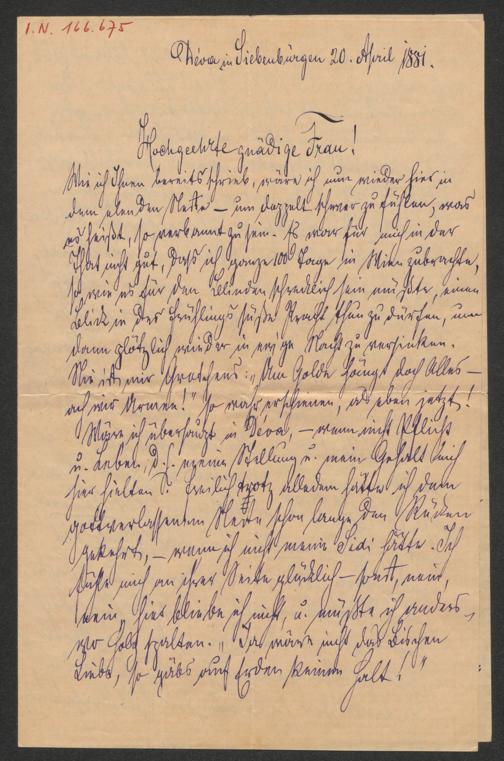 I.N. 166.675
Déva in Siebenbürgen 20. April 1881.
Hochgeehrte gnädige Frau!
Wie ich Ihnen bereits schrieb, wäre ich nun wieder hier in
dem elenden Neste – um doppelt schwer zu fühlen, was
es heißt, so verbannt zu sein. Es war für mich in der
That nicht gut, daß ich ganze 100 Tage in Wien zubrachte,
so wie es für den Blinden schrecklich sein müßte, einen
Blick in des Frühlings süße Pracht thun zu dürfen, um
dann plötzlich wieder in ewige Nacht zu versinken.
Nie ist mir Gretchens: „Am Golde hängt doch Alles –
ach wir Armen!" so wahr erschienen, als eben jetzt!
Wäre ich überhaupt in Déva, – wenn nicht Pflicht
u. Leben, d. h. meine Stellung u. mein Gehalt mich
hier hielten? Freilich trotz alledem hätte ich dem
gottverlassenen Neste schon lange den Rücken
gekehrt, – wenn ich nicht meine Sidi hätte. Ich
fühle mich an ihrer Seite glücklich – sonst, nein,
nein, hier bliebe ich nicht, u. müßte ich anders-
wo Holz spalten. „Ja wäre nicht das Bischen
Liebe, so gäbs auf Erden keinen Halt!"